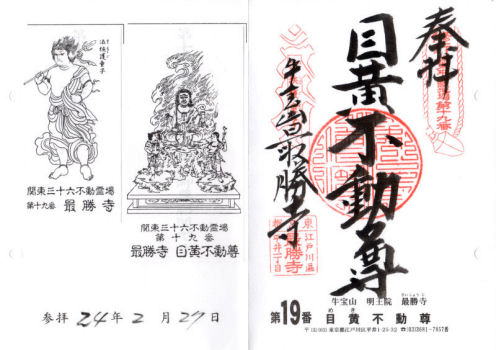 奉拝
目黄不動尊
牛宝山最勝寺
第十九番
東
江戸川区
最勝寺
平井一丁目
牛宝山 明王院 最勝寺
さいしょうじ
第19番 目黄不動尊
めき
〒(132) 東京都江戸川区平井1-25-32 ☎(03)(3681)-7857番
法挾護童子
関東三十六不動霊場
第十九番 最勝寺
関東三十六不動霊場
第十九番
最勝寺 目黄不動尊
参拝 24年2月27日